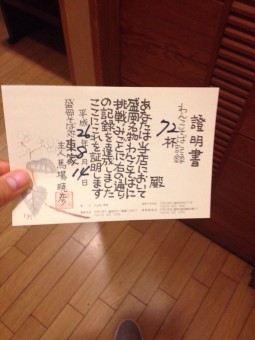 證明書
わんこそば記録
72杯
殿
あなたは当店において
盛岡名物わんこそばに
挑戦しみごとに右の通り
の記録を達成しました
ここにこれを証明します
平成26年8月14日
東家
主人 馬場暁彦